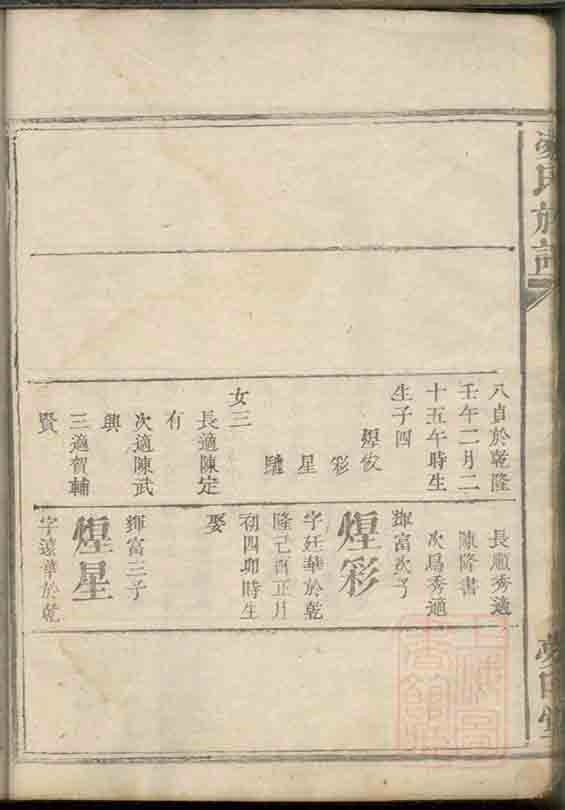 八貞於乾隆
壬午二月二
十五午時生
生子四
煌俊
彩
星
女三
長適陳定
有
次適陳武
興
三適賀輔
賢
長顧秀適
陳隆書
次爲秀適
輝富次子
煌彩
字廷華於乾
隆己酉正月
初四卯時生
娶
輝富三子
煌星
字遠華於乾
氏族譜